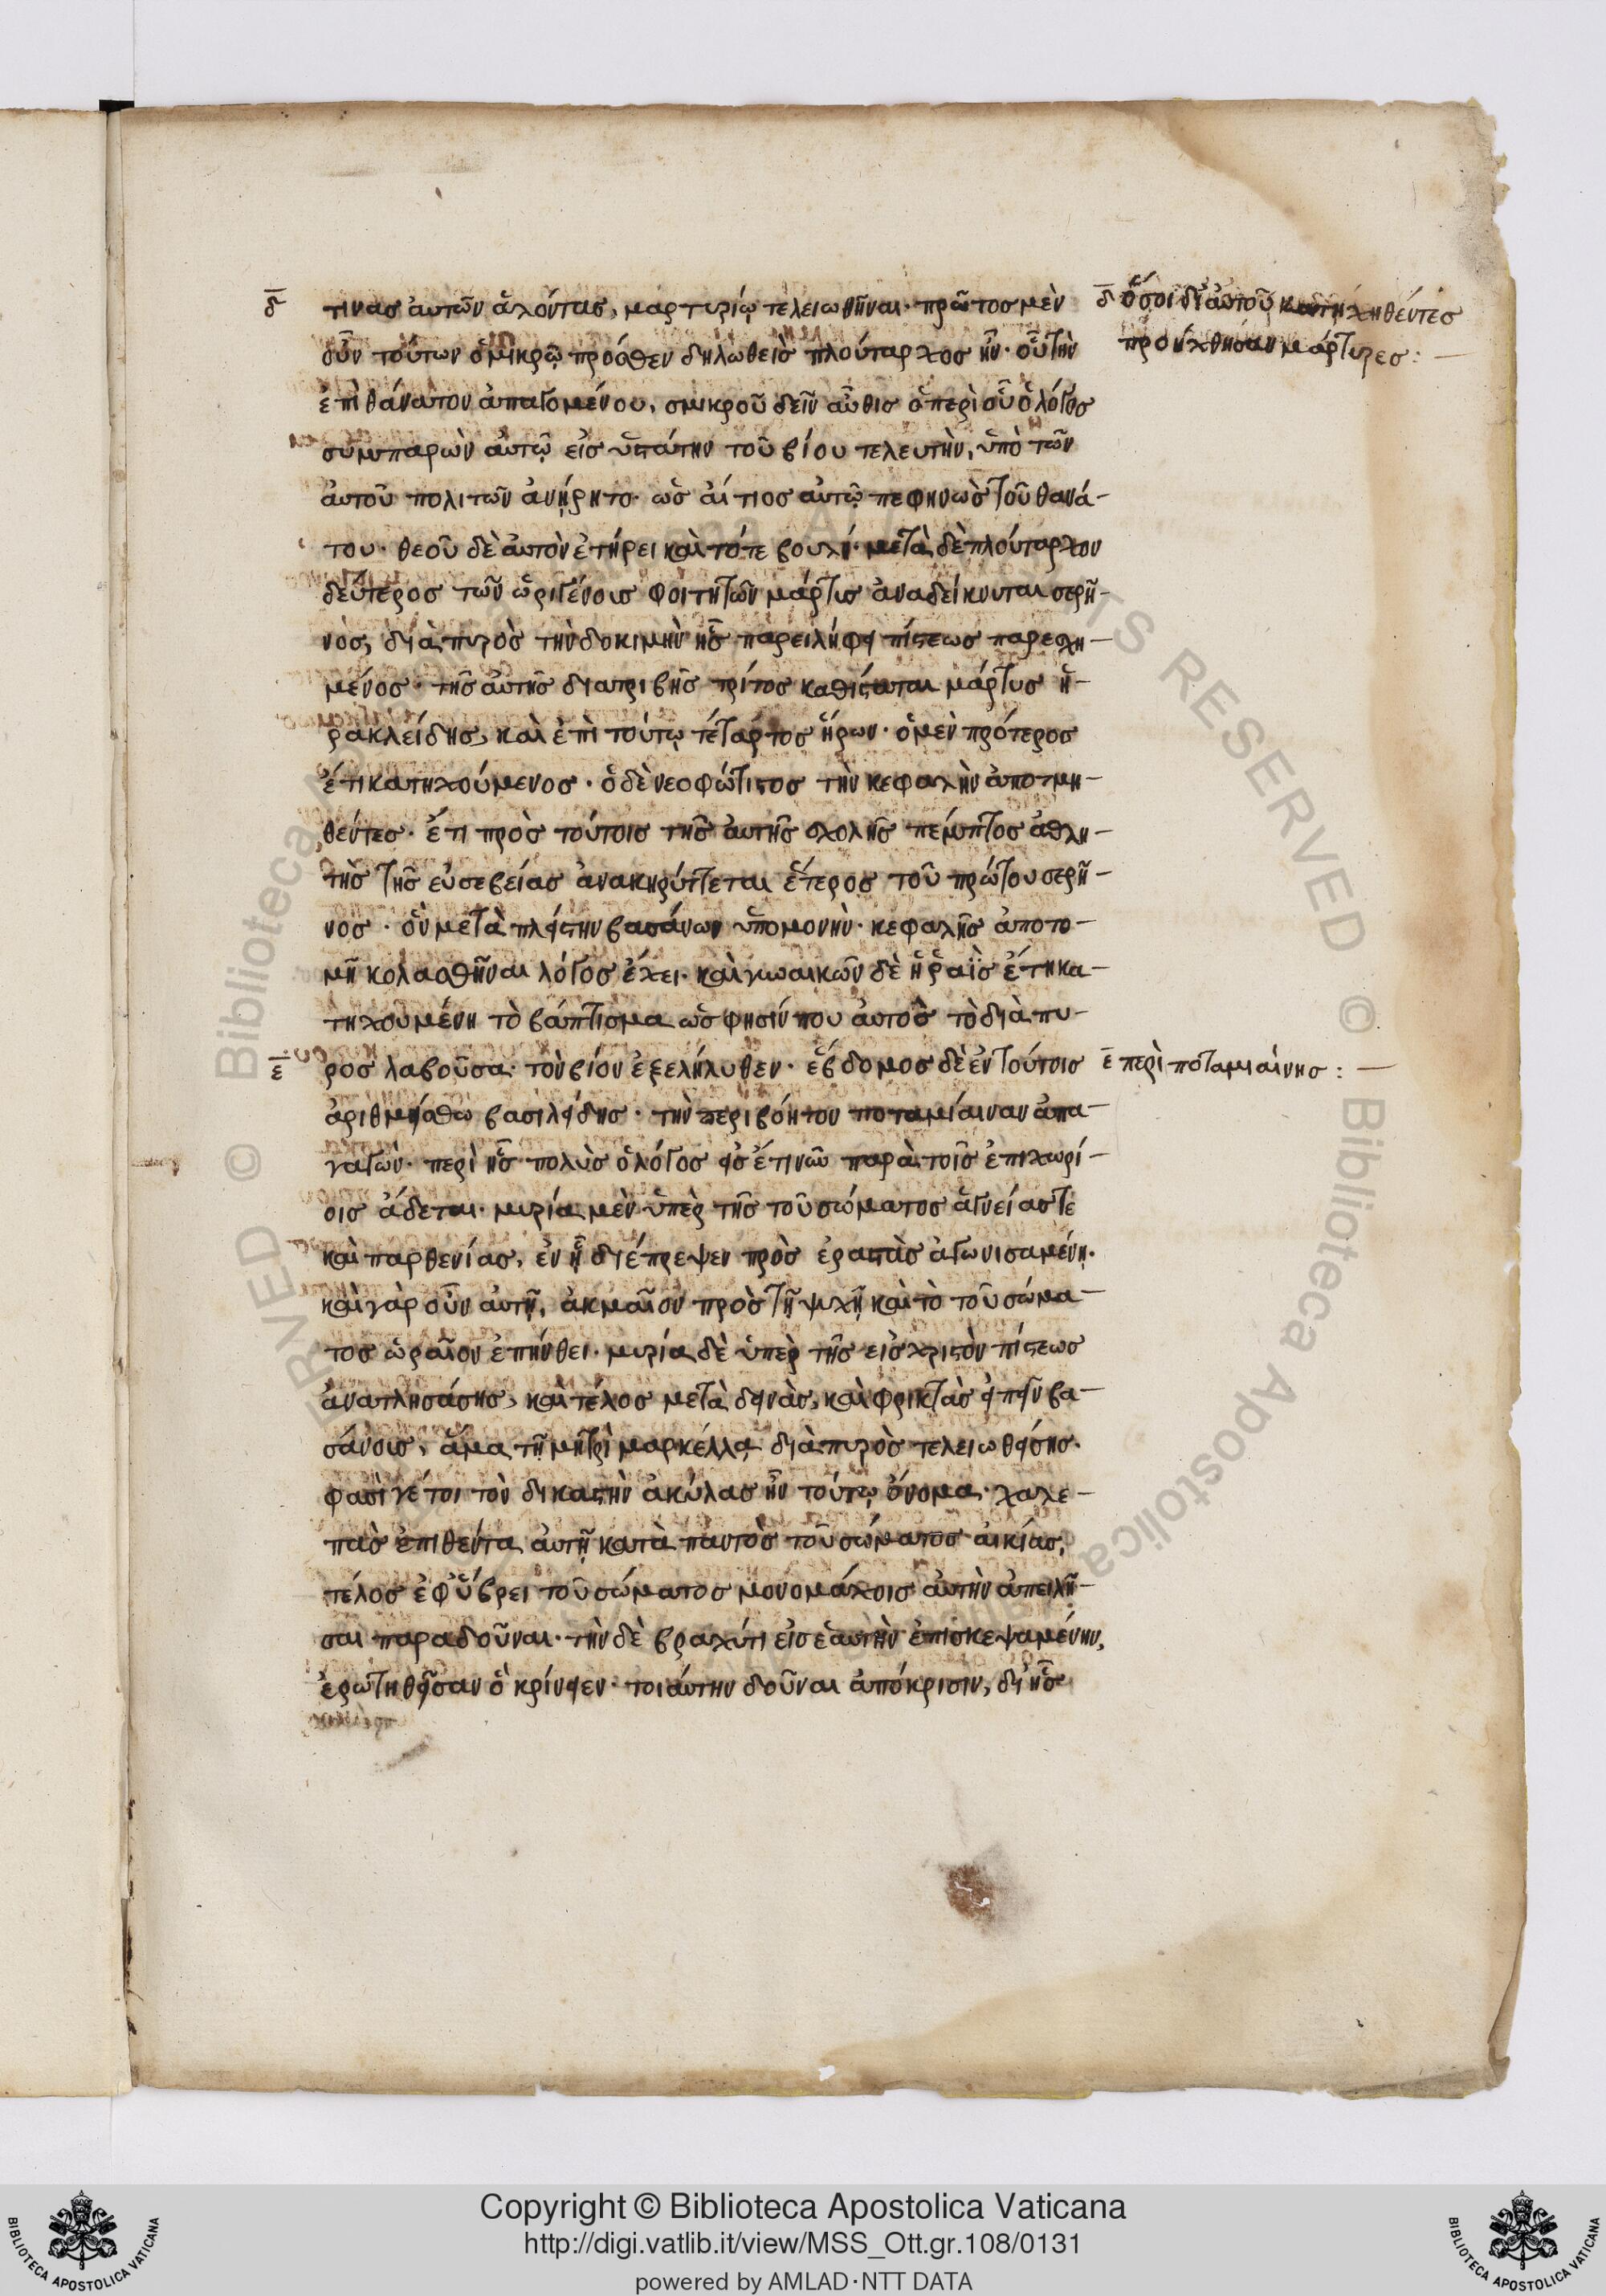 δ̅ τινας αὐτῶν ἁλόντας, μαρτυρίῳ τελειωθῆναι· πρῶτος μὲν
δ̅ ὅσοι δι᾽ αὐτοῦ κατηχηθέντες
οὖν τούτων ὁ μικρῷ πρόσθεν δηλωθεὶς πλούταρχος ἦν· οὗ τὴν
προήχθησαν μάρτυρες:—
ἐπὶ θάνατον ἀπαγομένου, σμικροῦ δεῖν αὖθις ὁ περὶ οὗ ὁ λόγος
συμπαρὼν αὐτῷ εἰς ὑστάτην τοῦ βίου τελευτὴν, ὑπὸ τῶν
αὐτοῦ πολιτῶν ἀνῄρητο· ὡς αἴτιος αὐτῷ πεφηνὼς τοῦ θανά-
του· θεοῦ δὲ αὐτὸν ἐτήρει καὶ τότε βουλή· μετὰ δὲ πλούταρχον
δεύτερος τῶν ὠριγένους φοιτητῶν μάρτυς ἀναδείκνυται σερῆ-
νος, διὰ πυρὸς τὴν δοκιμὴν ἧς παρειλήφει πίστεως παρεσχη-
μένος· τῆς αὐτῆς διατριβῆς τρίτος καθίσταται μάρτυς ἡ-
ρακλείδης, καὶ ἐπὶ τούτῳ τέταρτος ἥρων· ὁ μὲν πρότερος
ἔτι κατηχούμενος· ὁ δὲ νεοφώτιστος τὴν κεφαλὴν ἀποτμη-
θέντες· ἔτι πρὸς τούτοις τῆς αὐτῆς σχολῆς πέμπτος ἀθλη-
τὴς τῆς εὐσεβείας ἀνακηρύττεται ἕτερος τοῦ πρώτου σερῆ-
νος· ὃν μετὰ πλείστην βασάνων ὑπομονὴν· κεφαλῆς ἀποτο-
μῇ κολασθῆναι λόγος ἔχει· καὶ γυναικῶν δὲ ἡ ἡραῒς ἔτι κα-
τηχουμένη τὸ βάπτισμα ὥς φησίν που αὐτὸς τὸ διὰ πυ-
ε̅ ρὸς λαβοῦσα· τὸν βίον ἐξελήλυθεν· ἕβδομος δὲ ἐν τούτοις
ε̅ περὶ ποταμιαίνης:—
ἀριθμείσθω βασιλείδης· τὴν περιβόητον ποταμίαιναν ἀπα-
γαγών· περὶ ἧς πολὺς ὁ λόγος εἰς ἔτι νῦν παρὰ τοῖς ἐπιχωρί-
οις ᾄδεται· μυρία μὲν ὑπὲρ τῆς τοῦ σώματος ἁγνείας τε
καὶ παρθενίας, ἐν ᾗ διέπρεψεν πρὸς ἐραστὰς ἀγωνισαμένη·
καὶ γὰρ οὖν αὐτῇ, ἀκμαῖον πρὸς τῇ ψυχῇ καὶ τὸ τοῦ σώμα-
τος ὡραῖον ἐπήνθει· μυρία δὲ ὑπὲρ τῆς εἰς χριστὸν πίστεως
ἀνατλησάσης, καὶ τέλος μετὰ δεινὰς, καὶ φρικτὰς εἰπεῖν βα-
σάνους, ἅμα τῇ μητρὶ μαρκέλλᾳ διὰ πυρὸς τελειωθείσης·
φασί γέ τοι τὸν δικαστὴν ἀκύλας ἦν τούτῳ ὄνομα· χαλε-
πὰς ἐπιθέντα αὐτῇ κατὰ παντὸς τοῦ σώματος αἰκίας,
τέλος ἐφ᾽ ὕβρει τοῦ σώματος μονομάχοις αὐτὴν ἀπειλῆ-
σαι παραδοῦναι· τὴν δὲ βραχύ τι εἰς ἑαυτὴν ἐπισκεψαμένην,
ἐρωτηθεῖσαν ὃ κρίνειεν· τοιαύτην δοῦναι ἀπόκρισιν, δι᾽ ἧς
Copyright © Biblioteca Apostolica Vaticana
http://digi.vatlib.it/view/MSS_Ott.gr.108/0131
powered by AMLAD·NTT DATA